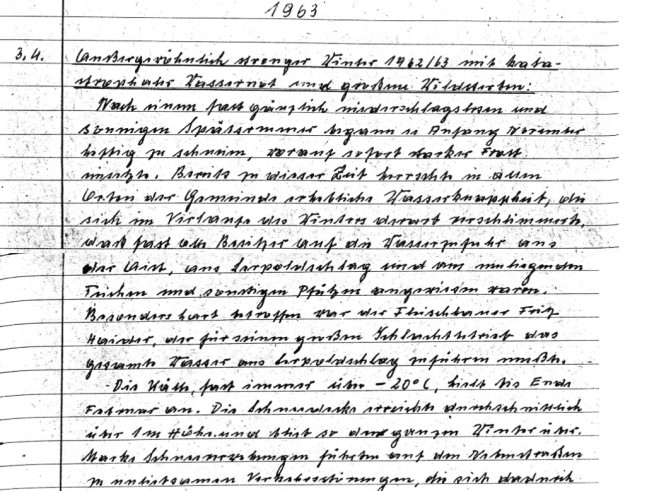 1963
3.4. Außergewöhnlich strenger Winter 1962/63 mit kata-
strophaler Wassernot und großem Wildsterben:
Nach einem fast gänzlich niederschlagslosen und
sonnigen Spätsommer begann es Anfang November
heftig zu schneien, worauf sofort starker Frost
einsetzte. Bereits zu dieser Zeit herrschte in allen
Orten der Gemeinde erhebliche Wasserknappheit, die
sich im Verlaufe des Winters derart verschlimmerte,
daß fast alle Besitzer auf die Wasserzufuhr aus
der Aist, aus Leopoldschlag und aus umliegenden
Teichen und sonstigen Pfützen angewiesen waren.
Besonders hart betroffen war der Fleischhauer Fritz
Haider, der für seinen großen Schlachtbetrieb das
gesamte Wasser aus Leopoldschlag zuführen mußte.
Die Kälte, fast immer über - 20° C, hielt bis Ende
Februar an. Die Schneedecke erreichte durchschnittlich
über 1 m Höhe und blieb so den ganzen Winter über.
Starke Schneeverwehungen führten auf den Nebenstraßen
zu unliebsamen Verkehrsstörungen, die sich dadurch